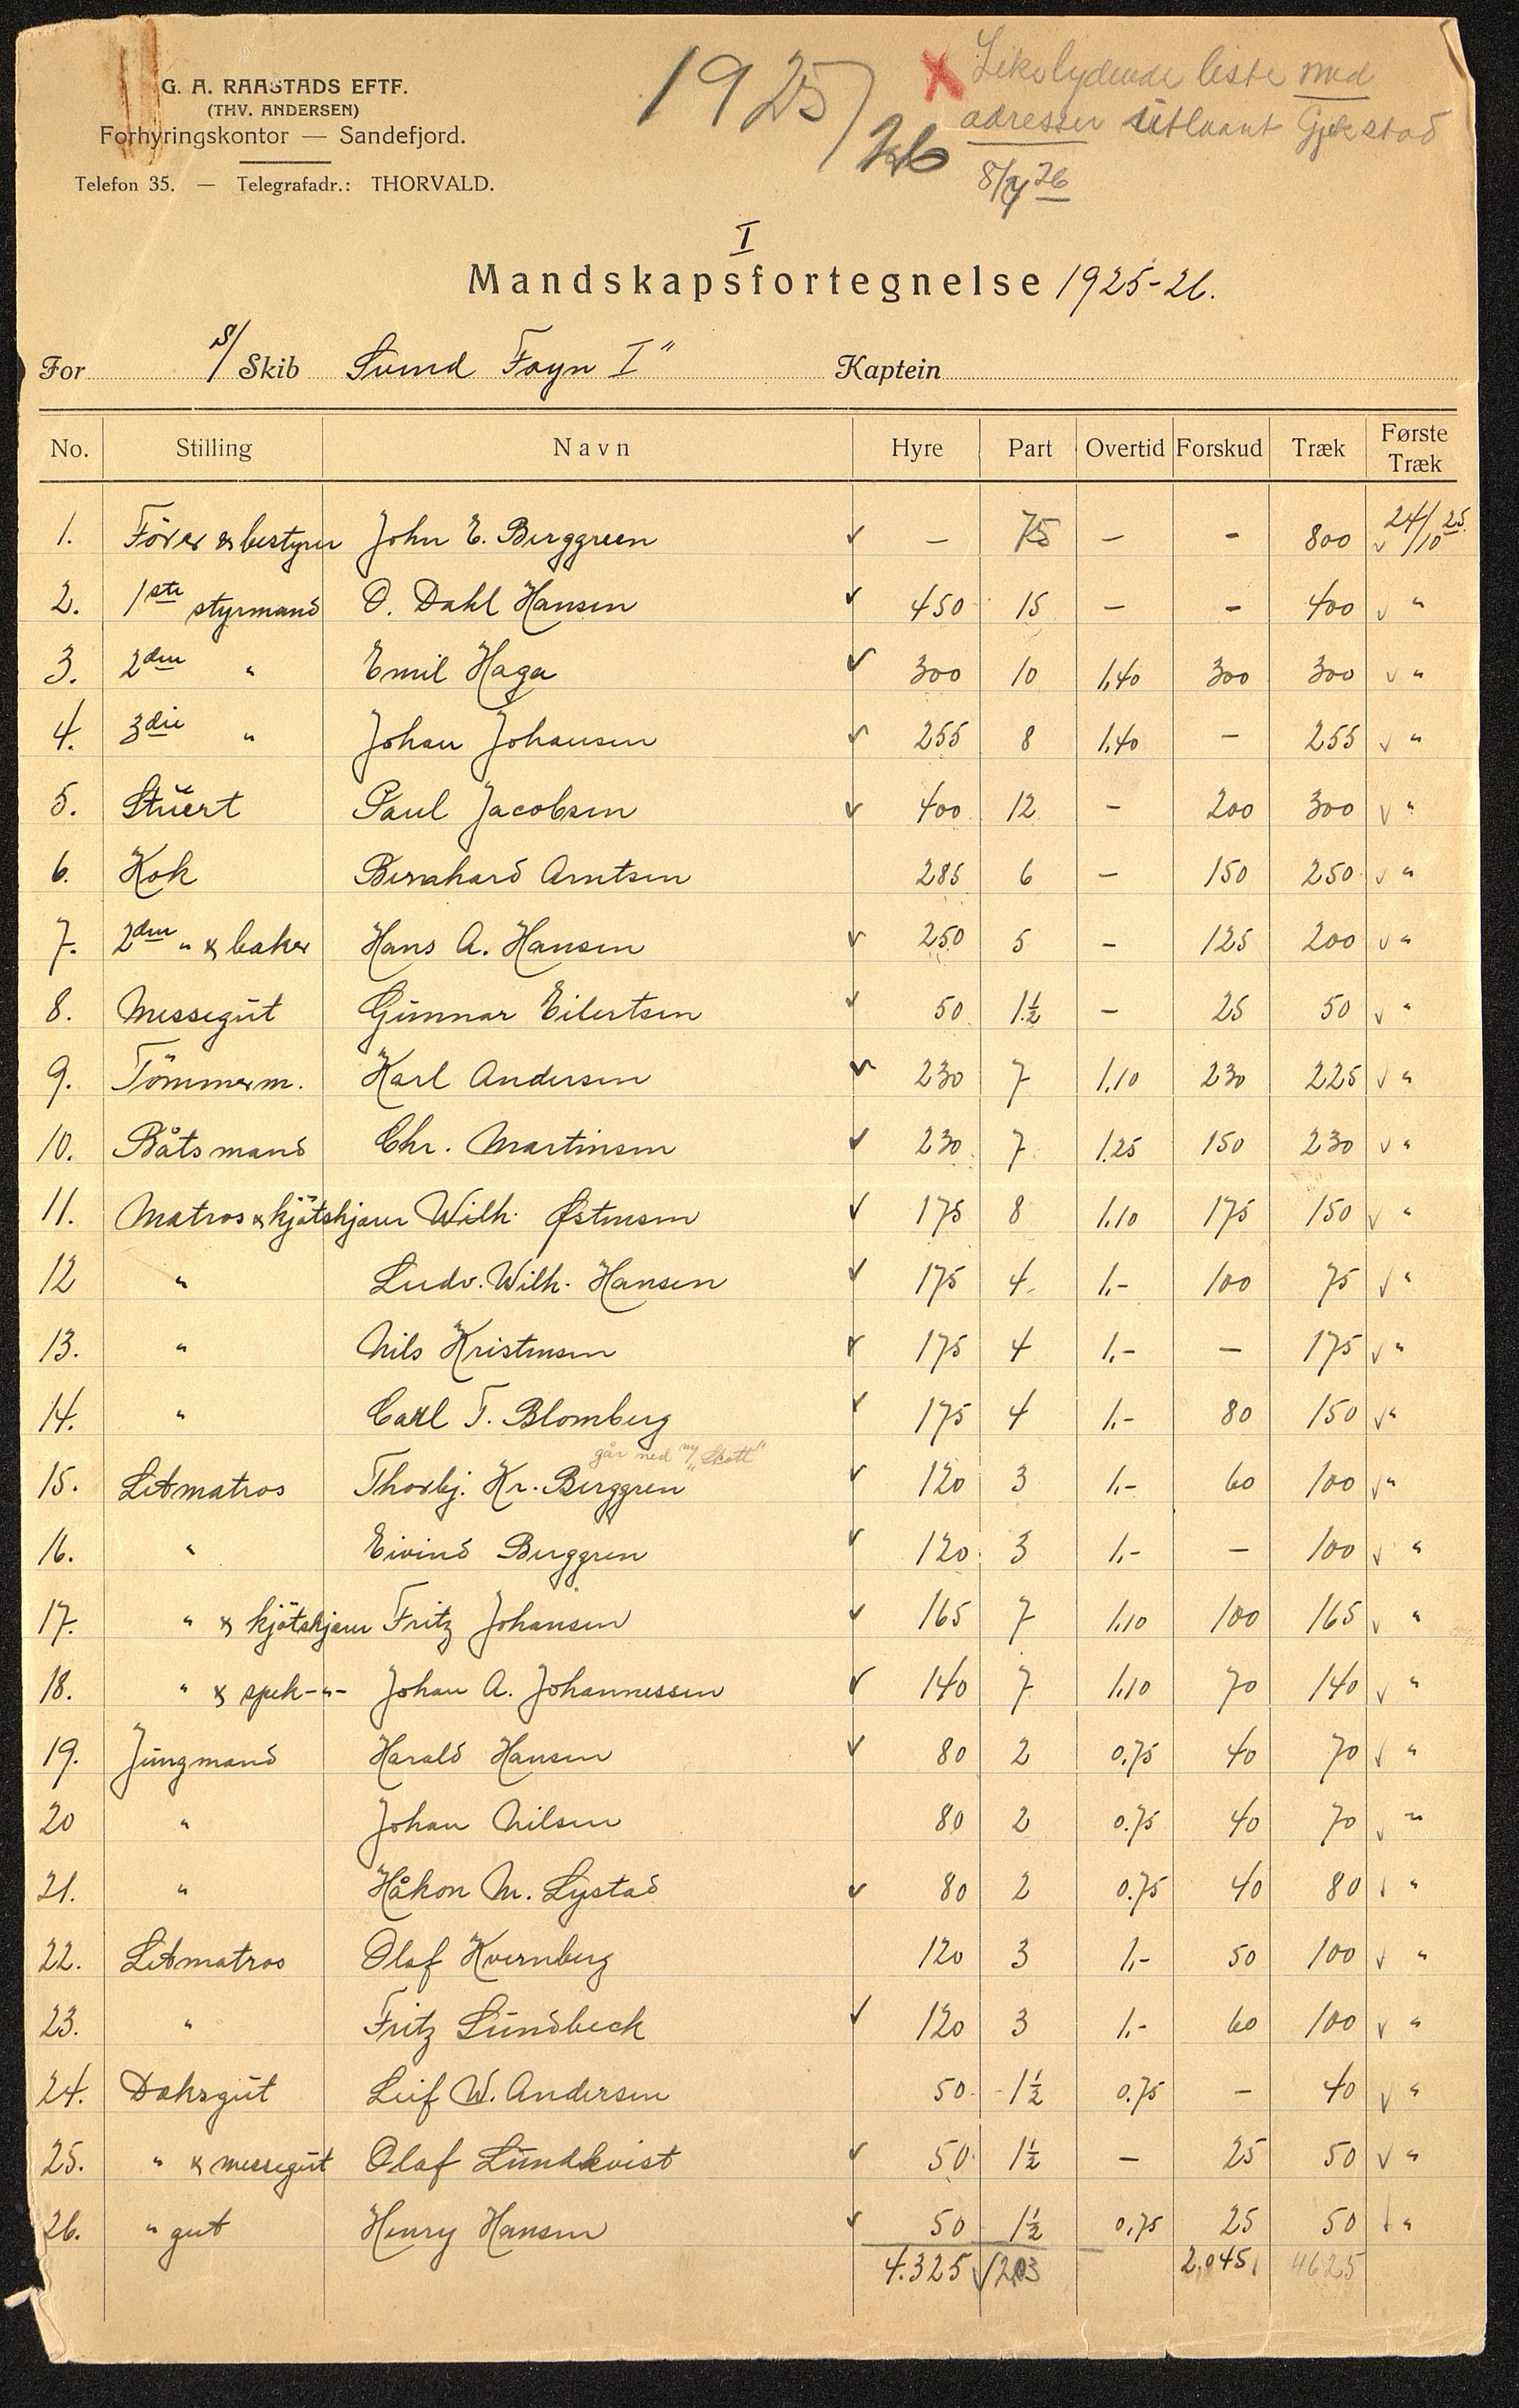 G. A. RAASTADS EFTF.
(THV. ANDERSEN)
Forhyringskontor — Sandefjord.
Telefon 35. — Telegrafadr.: THORVALD.
1925/26
X Likelydende liste med
adresser utlaant Gjekstad
8/4 26
I
Mandskapsfortegnelse 1925-26.
For S/ Skib Svend Foyn I" Kaptein
No. Stilling Navn Hyre Part Overtid Forskud Træk Første Træk
1. Förer & bestyrer John E. Berggreen ✓ — 75 — - 800 ✓ 24/10 25.
2. 1ste styrmand O. Dahl Hansen ✓ 450 15 — - 400 ✓ "
3. 2den " Emil Haga ✓ 300 10 1,40 300 300 ✓ "
4. 3die " Johan Johansen ✓ 255 8 1,40 — 255 ✓ "
5. Stuert Paul Jacobsen ✓ 400 12 — 200 300 ✓ "
6. Kok Bernhard Arntsen 285 6 — 150 250 ✓ "
7. 2den " & baker Hans A. Hansen ✓ 250 5 — 125 200 ✓ "
8. Messegut Gunnar Eilertsen ✓ 50 1½ — 25 50 ✓ "
9. Tömmerm. Karl Andersen ✓ 230 7 1,10 230 225 ✓ "
10. Båtsmand Chr. Martinsen ✓ 230 7 1.25 150 230 ✓ "
11. Matros & kjötskjærer Wilh. Østensen ✓ 175 8 1,10 175 150 ✓ "
12 " Ludv. Wilh. Hansen ✓ 175 4 1,- 100 75 ✓ "
13. " Nils Kristensen ✓ 175 4 1,- — 175 ✓ "
14. " Carl T. Blomberg ✓ 175 4 1,- 80 150 ✓ "
går ned m/ "Skott"
15. Letmatros Thorbj. Kr. Berggren ✓ 120 3 1,- 60 100 ✓ "
16. " Eivind Berggren ✓ 120 3 1,- — 100 ✓ "
17. " & kjötskjærer Fritz Johansen ✓ 165 7 1,10 100 165 ✓ "
18. " & spek-"- Johan A. Johannessen ✓ 140 7 1,10 70 140 ✓ "
19. Jungmand Harald Hansen ✓ 80 2 0.75 40 70 ✓ "
20 " Johan Nilsen 80 2 0.75 40 70 ✓ "
21. " Håkon M. Lystad ✓ 80 2 0.75 40 80 ✓ "
22. Letmatros Olaf Kvernberg 120 3 1,- 50 100 ✓ "
23. " Fritz Lundbeck ✓ 120 3 1.- 60 100 ✓ "
24. Dæksgut Leif W. Andersen 50 1½ 0.75 — 40 ✓ "
25. " & messegut Olaf Lundkvist ✓ 50 1½ — 25 50 ✓ "
26. " gut Henry Hansen ✓ 50 1½ 0,75 25 50 ✓ "
4.325 ✓ 203 2.045, 4625